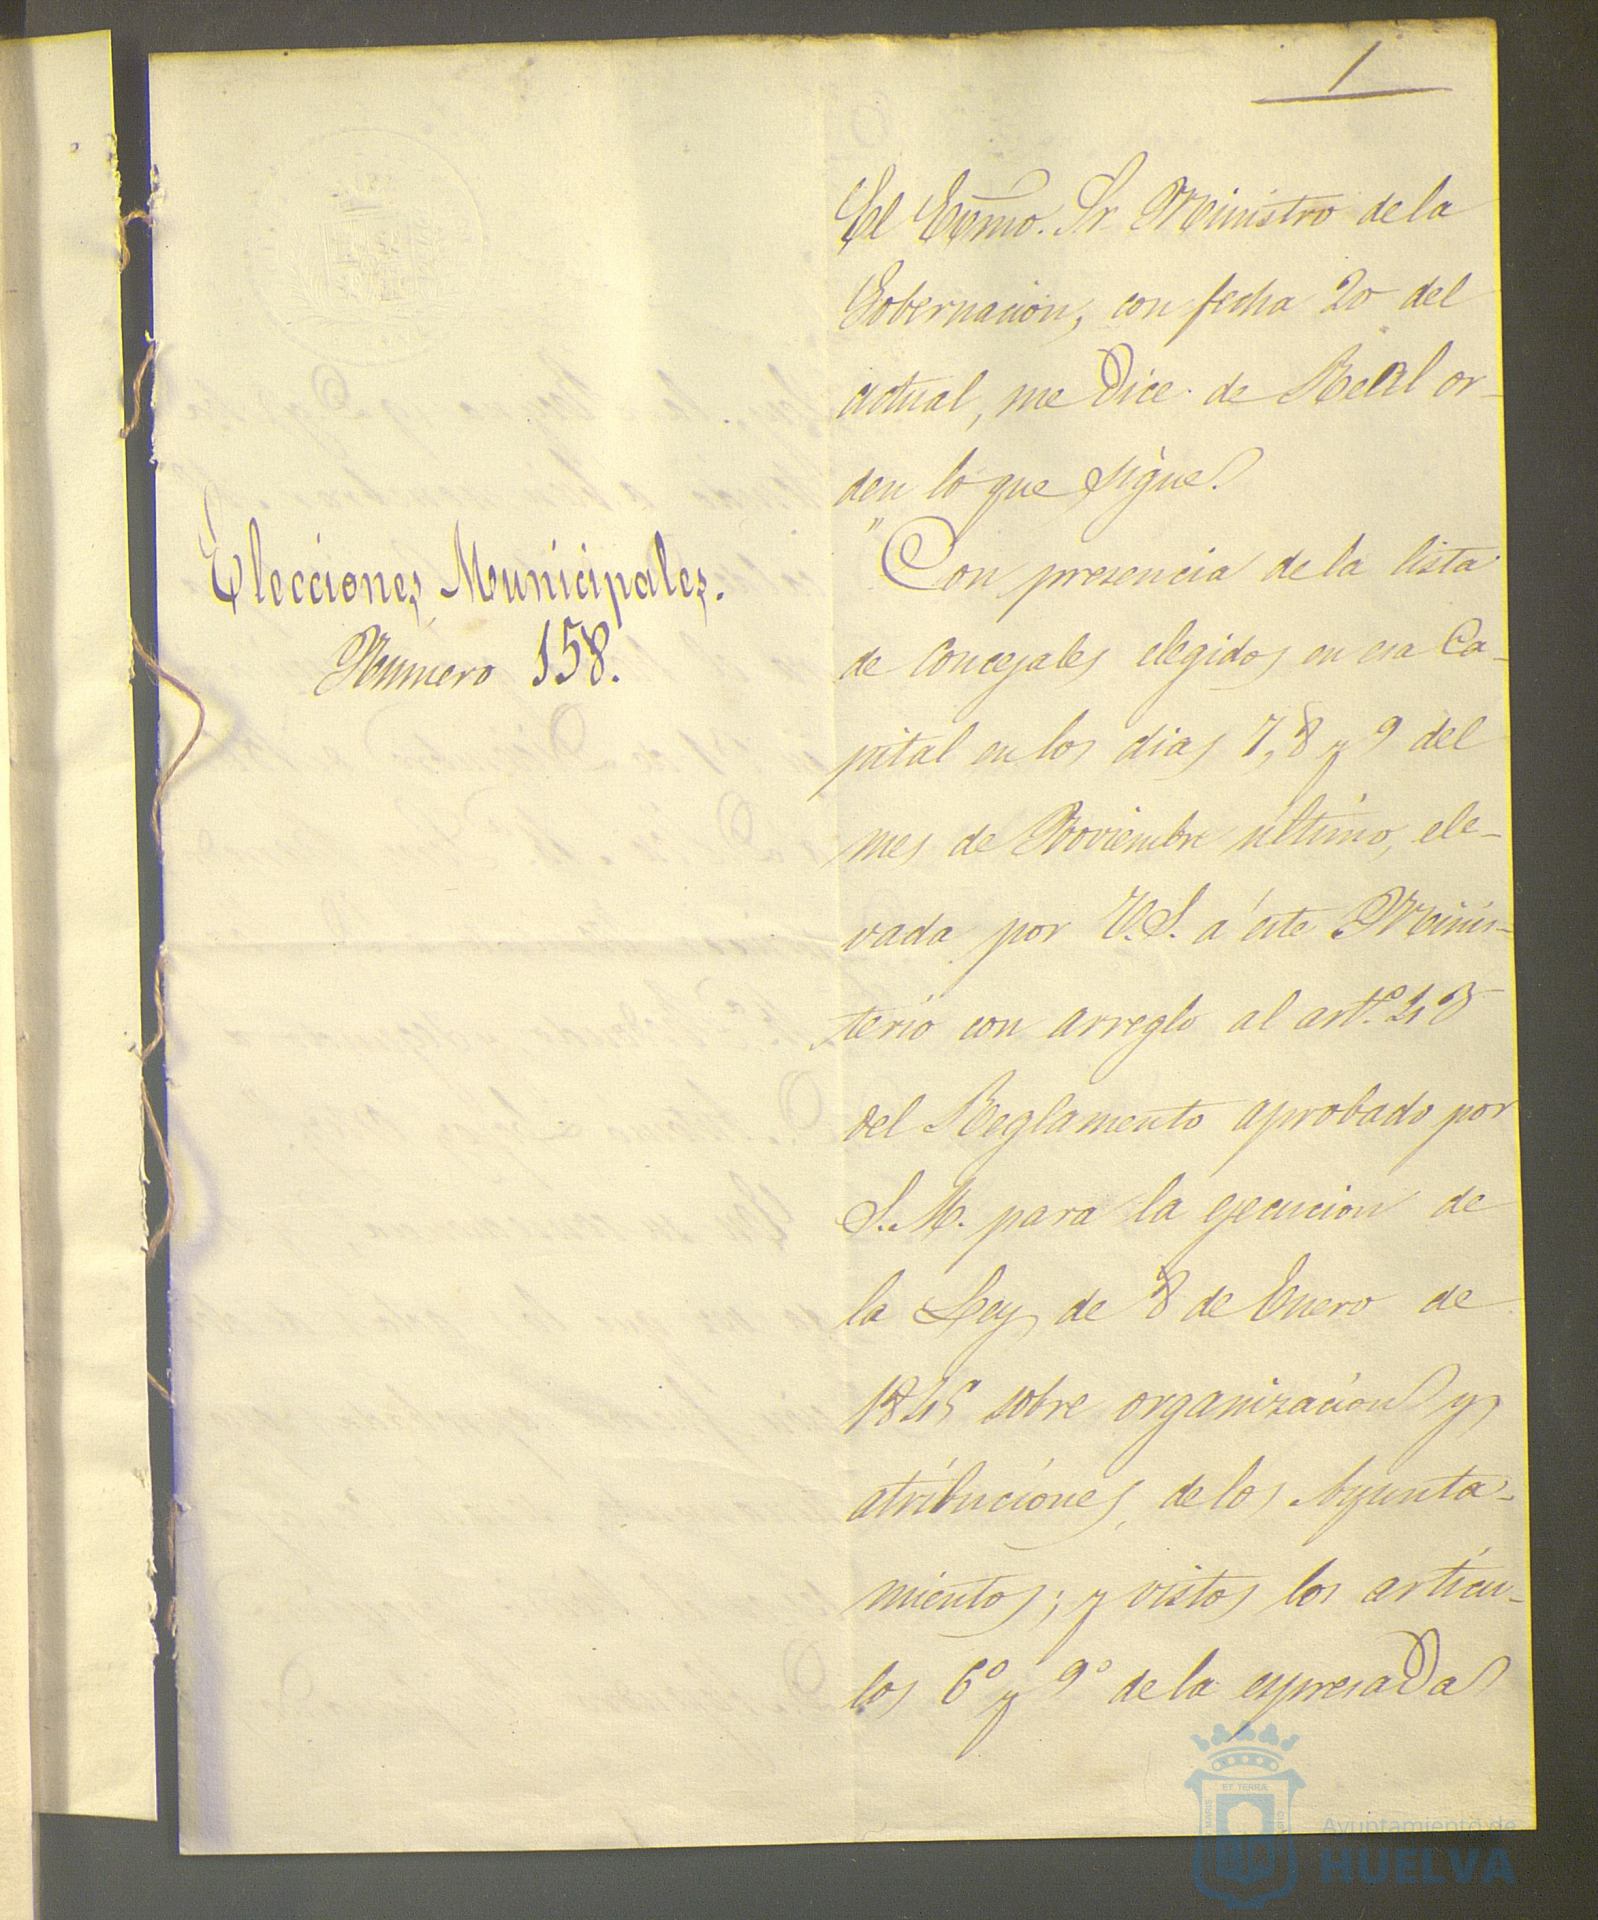 1
Elecciones Municipales.
Número 158.
El Excmo. Sr. Ministro de la
Gobernacion, con fecha 20 del
actual, me dice de Real or-
den lo que sigue.
"Con presencia de la lista
de Concejales elegidos en esa Ca-
pital en los dias 7, 8 y 9 del
mes de Noviembre último, ele-
vada por V.S. á este Minis-
terio con arreglo al artº. 48
del Reglamento aprobado por
S.M. para la ejecucion de
la Ley de 8 de Enero de
1845 sobre organizacion y
atribuciones de los Ayunta-
mientos; y vistos los artícu-
los 6º y 9º de la espresada
ET TERRA
MARIS
Ayuntamiento de
HUELVA